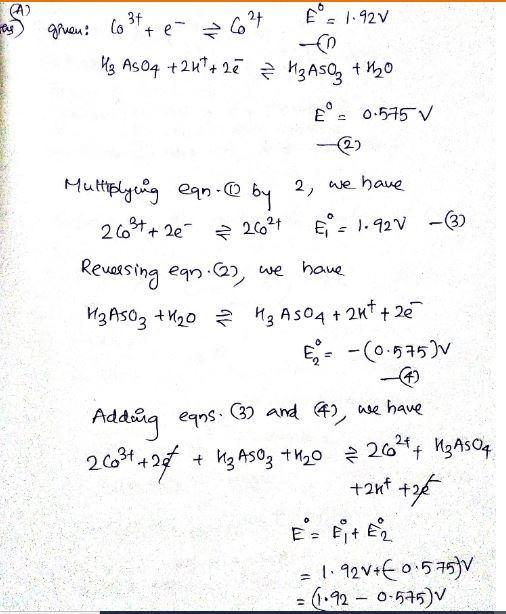 (A)
Ans) given: Co³⁺ + e⁻ ⇌ Co²⁺ E° = 1.92V
—(1)
H₃AsO₄ + 2H⁺ + 2e⁻ ⇌ H₃AsO₃ + H₂O
E° = 0.575 V
—(2)
Multiplying eqn. (1) by 2, we have
2Co³⁺ + 2e⁻ ⇌ 2Co²⁺ E₁° = 1.92V —(3)
Reversing eqn. (2), we have
H₃AsO₃ + H₂O ⇌ H₃AsO₄ + 2H⁺ + 2e⁻
E₂° = -(0.575)V
—(4)
Adding eqns. (3) and (4), we have
2Co³⁺ + 2e⁻ + H₃AsO₃ + H₂O ⇌ 2Co²⁺ + H₃AsO₄
+2H⁺ + 2e⁻
E° = E₁° + E₂°
= 1.92V + (-0.575)V
= (1.92 - 0.575)V